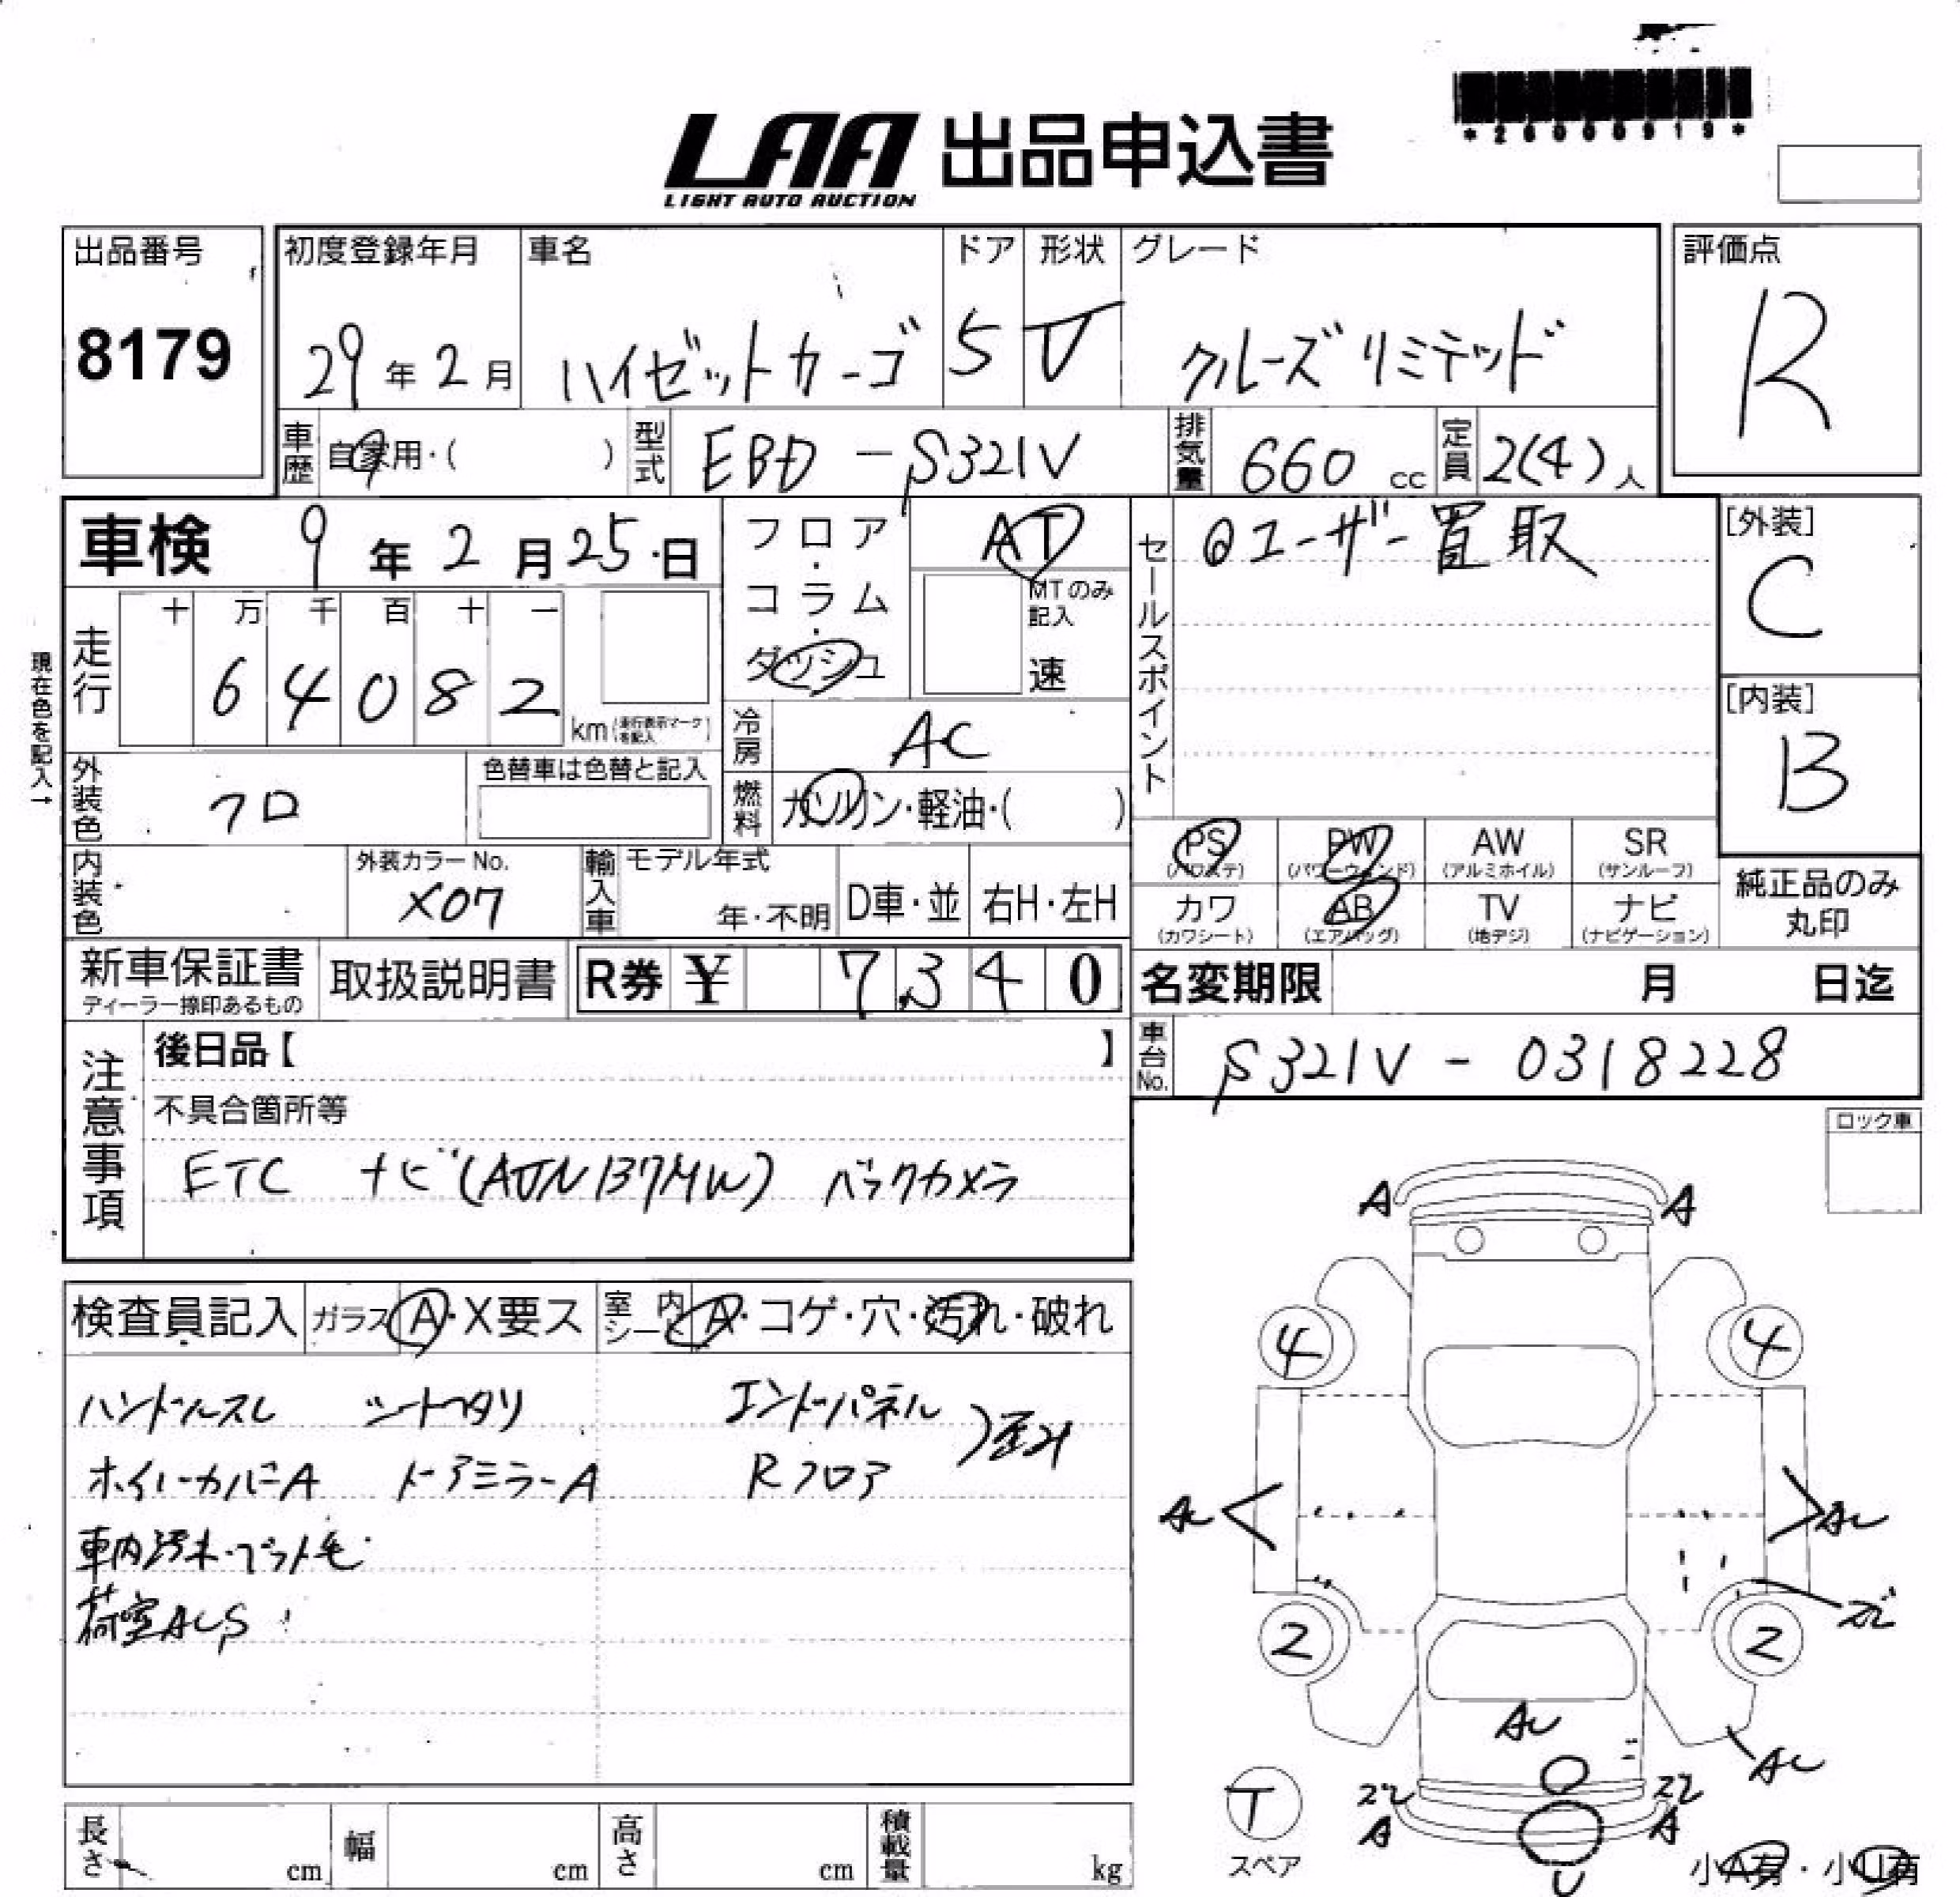 *26000919*
LAA 出品申込書
LIGHT AUTO AUCTION
出品番号
8179
初度登録年月
29年2月
車名
ハイゼットカーゴ
ドア
5
形状
V
グレード
クルーズリミテッド
評価点
R
車歴
自家用・( )
型式
EBD-S321V
排気量
660cc
定員
2(4)人
車検 9年2月25日
現在色を記入→
走行
十 万 千 百 十 一
6 4 0 8 2
km(走行表示マークを記入)
フロア・コラム・ダッシュ
AT
MTのみ記入
速
冷房
AC
燃料
ガソリン・軽油・( )
セールスポイント
◎ユーザー買取
[外装]
C
[内装]
B
外装色
クロ
色替車は色替と記入
内装色
外装カラーNo.
X07
輸入車
モデル年式
年・不明
D車・並
右H・左H
PS
(パワステ)
PW
(パワーウィンド)
AW
(アルミホイル)
SR
(サンルーフ)
カワ
(カワシート)
AB
(エアバッグ)
TV
(地デジ)
ナビ
(ナビゲーション)
純正品のみ
丸印
新車保証書
ディーラー捺印あるもの
取扱説明書
R券 ¥ 7,340
名変期限 月 日迄
車台No.
S321V-0318228
注意事項
後日品【 】
不具合箇所等
ETC ナビ(AVN137MW) バックカメラ
ロック車
検査員記入
ガラス A・X要ス
室内シート A・コゲ・穴・汚れ・破れ
ハンドルスレ シートヘタリ エンドパネル
ホイールカバーA ドアミラーA Rフロア
歪み
車内汚れ・ペット毛
荷室ACS
A A
4 4
AC AC
2 2
AC
AC
A A
U
T
スペア
小A有・小U有
長さ cm
幅 cm
高さ cm
積載量 kg